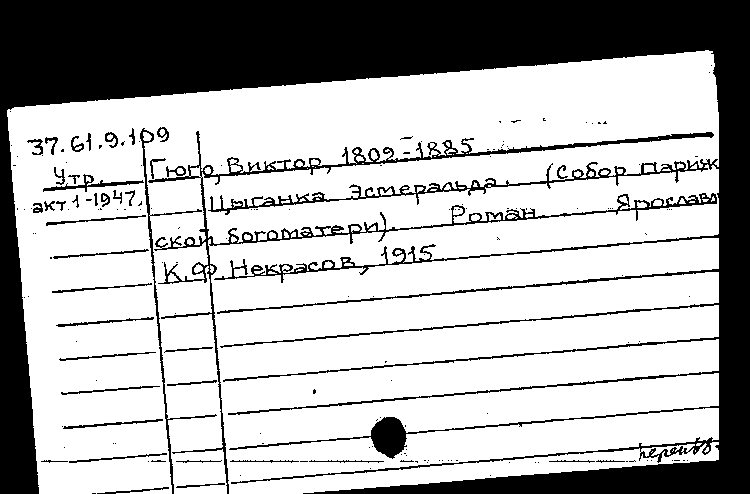 37.61.9.109
Утр. Гюго, Виктор, 1802-1885
акт 1-1947. Цыганка Эсмеральда. (Собор Париж
ской богоматери). Роман. Ярославль
К.Ф. Некрасов, 1915